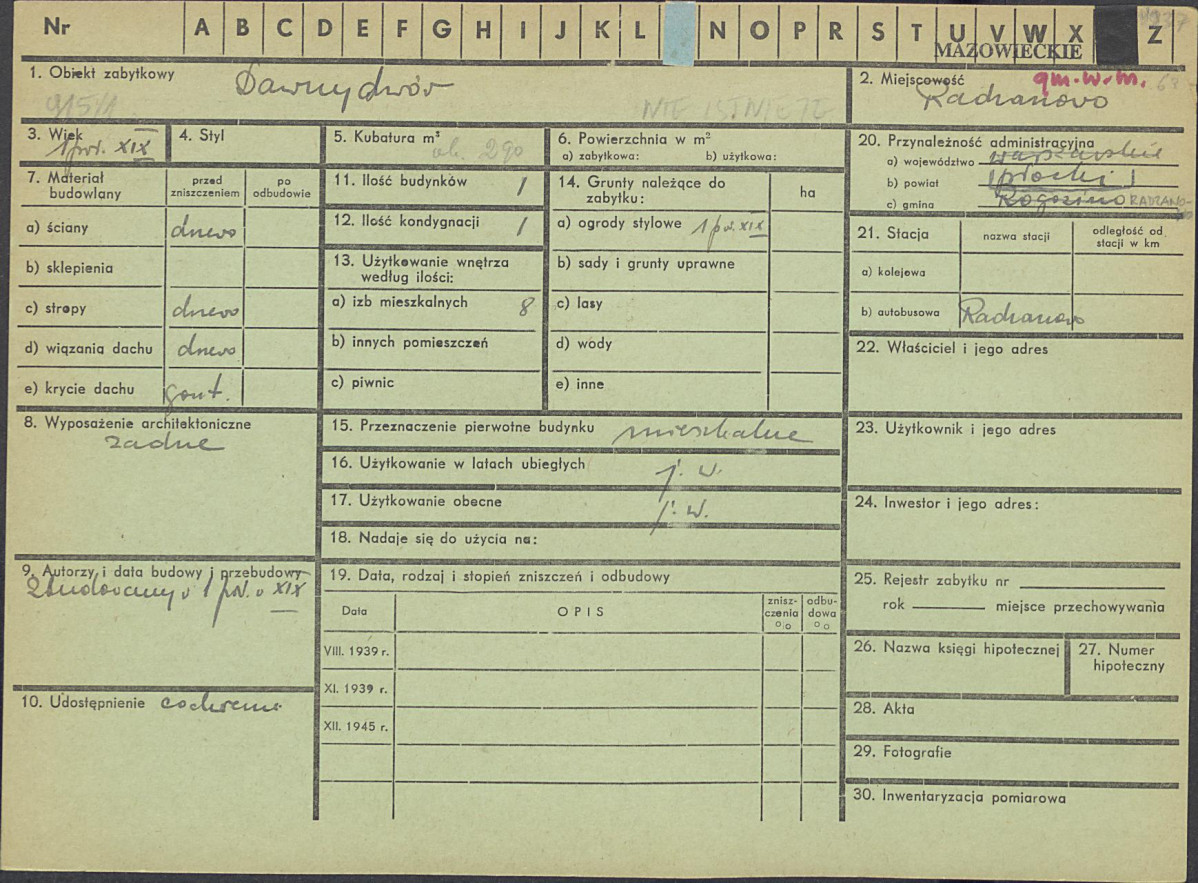 Nr A B C D E F G H I J K L N O P R S T U V W X Z
MAZOWIECKIE
1. Obiekt zabytkowy Dawny dwór
915/1
NIE ISTNIEJE
2. Miejscowość gm. w. m.
Radzanowo
3. Wiek
1 poł. XIX
4. Styl
5. Kubatura m³ ok. 290
6. Powierzchnia w m²
a) zabytkowa: b) użytkowa:
20. Przynależność administracyjna
a) województwo warszawskie
b) powiat płocki
c) gmina Rogozino RADZANO-
7. Materiał budowlany
przed zniszczeniem
po odbudowie
a) ściany drewo
b) sklepienia
c) stropy drewo
d) wiązania dachu drewo
e) krycie dachu gont.
11. Ilość budynków 1
12. Ilość kondygnacji 1
13. Użytkowanie wnętrza
według ilości:
a) izb mieszkalnych 8
b) innych pomieszczeń
c) piwnic
14. Grunty należące do
zabytku:
ha
a) ogrody stylowe 1 poł. XIX
b) sady i grunty uprawne
c) lasy
d) wody
e) inne
21. Stacja
nazwa stacji
odległość od
stacji w km
a) kolejowa
b) autobusowa Radzanowo
22. Właściciel i jego adres
8. Wyposażenie architektoniczne
żadne
15. Przeznaczenie pierwotne budynku mieszkalne
16. Użytkowanie w latach ubiegłych j. w.
17. Użytkowanie obecne j. w.
18. Nadaje się do użycia na:
23. Użytkownik i jego adres
24. Inwestor i jego adres:
9. Autorzy i data budowy i przebudowy
Zbudowany w 1 poł. w XIX
10. Udostępnienie
19. Data, rodzaj i stopień zniszczeń i odbudowy
Data
OPIS
znisz-
czenia
%
odbu-
dowa
%
VIII. 1939 r.
XI. 1939 r.
XII. 1945 r.
25. Rejestr zabytku nr
rok miejsce przechowywania
26. Nazwa księgi hipotecznej
27. Numer
hipoteczny
28. Akta
29. Fotografie
30. Inwentaryzacja pomiarowa